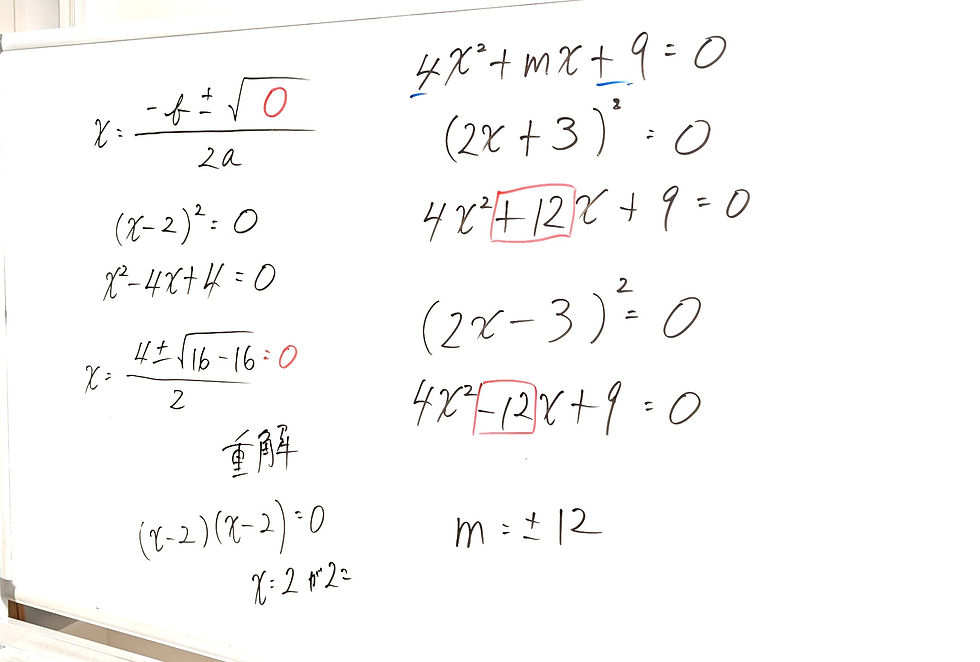 x = (-b ± √0) / 2a
(x-2)² = 0
x²-4x+4 = 0
x = (4 ± √(16-16) = 0) / 2
重解
(x-2)(x-2) = 0
x = 2 2
4x² + mx + 9 = 0
(2x + 3)² = 0
4x² + 12x + 9 = 0
(2x - 3)² = 0
4x² - 12x + 9 = 0
m = ± 12